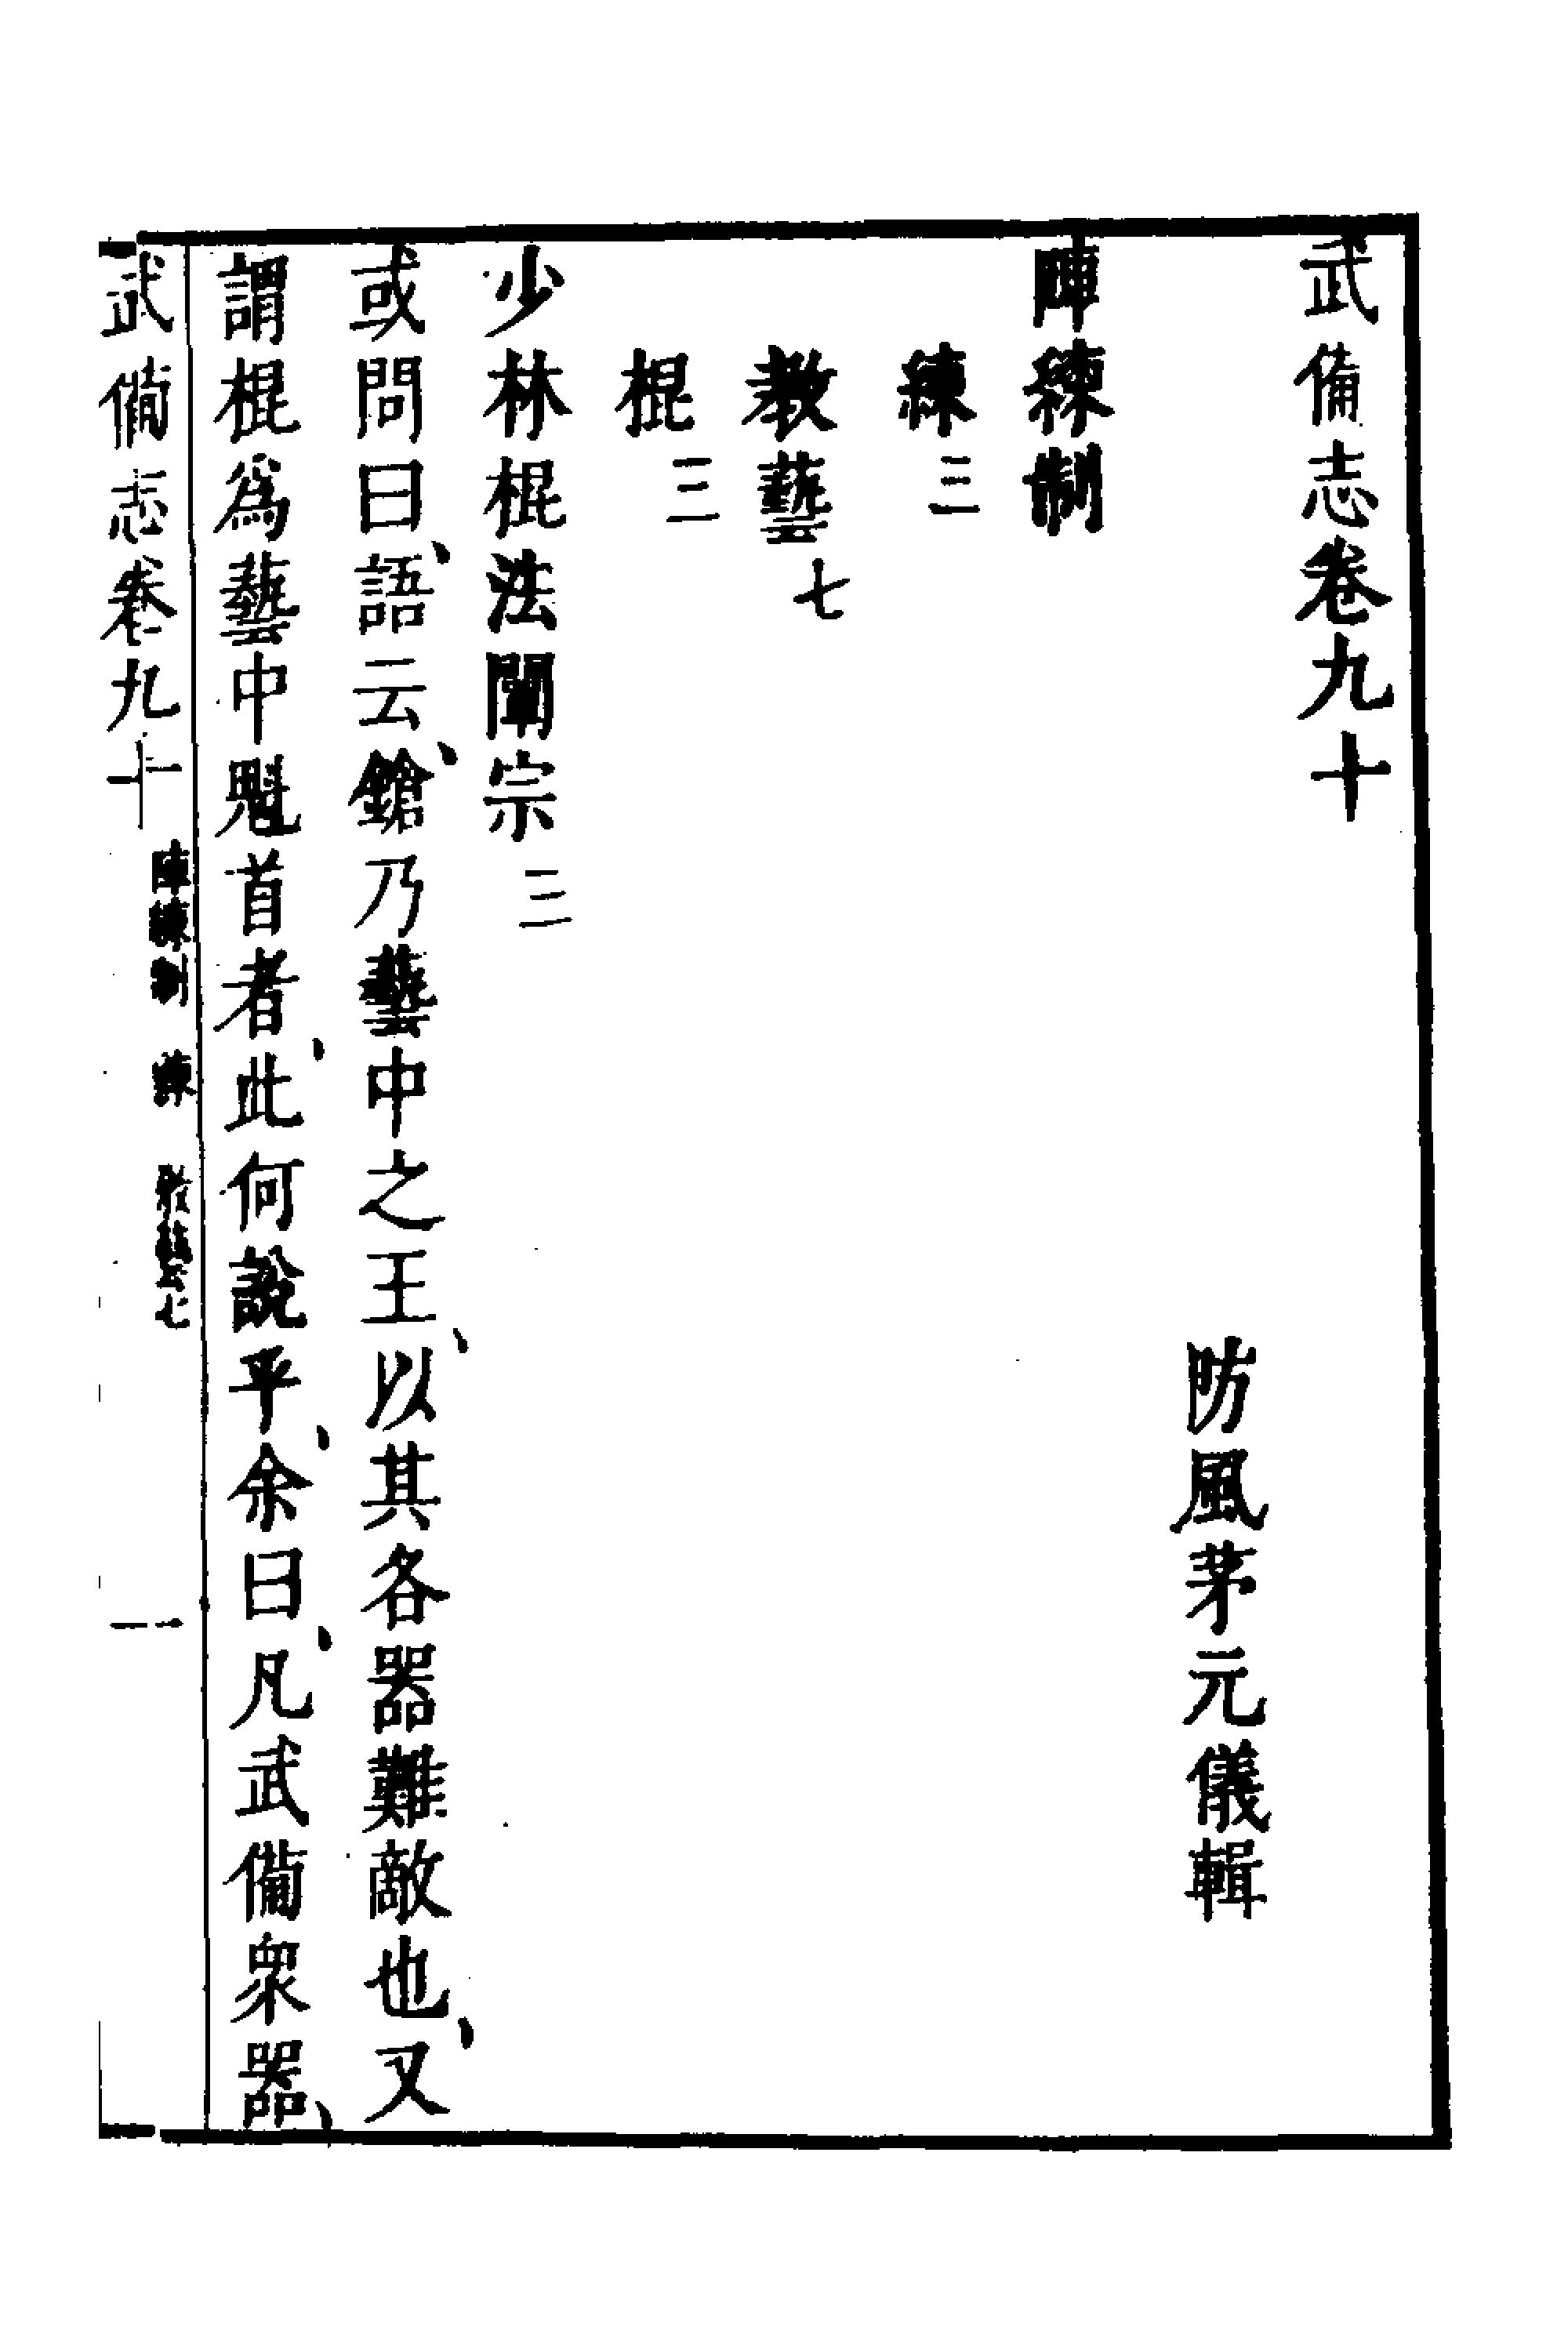 武備志卷九十
防風茅元儀輯
陣練制
練三
教藝七
棍三
少林棍法闡宗三
或問曰、語云、鎗乃藝中之王、以其各器難敵也、又
謂棍爲藝中魁首者、此何說乎、余曰、凡武備衆器、
武備志卷九十 陣練制 練 教藝七 一